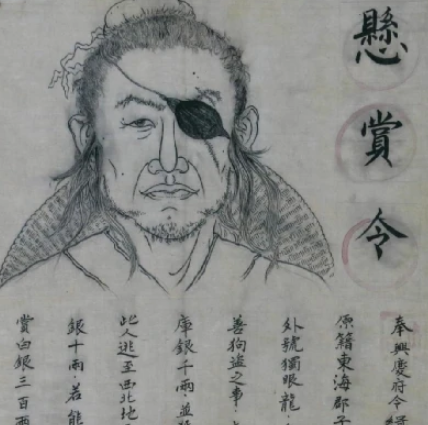 懸賞令
奉興慶府令
原籍東海郡
外號獨眼龍
善狗盜之事
庫銀千兩
此人逃至西北地
銀十兩若能
賞白銀三百兩